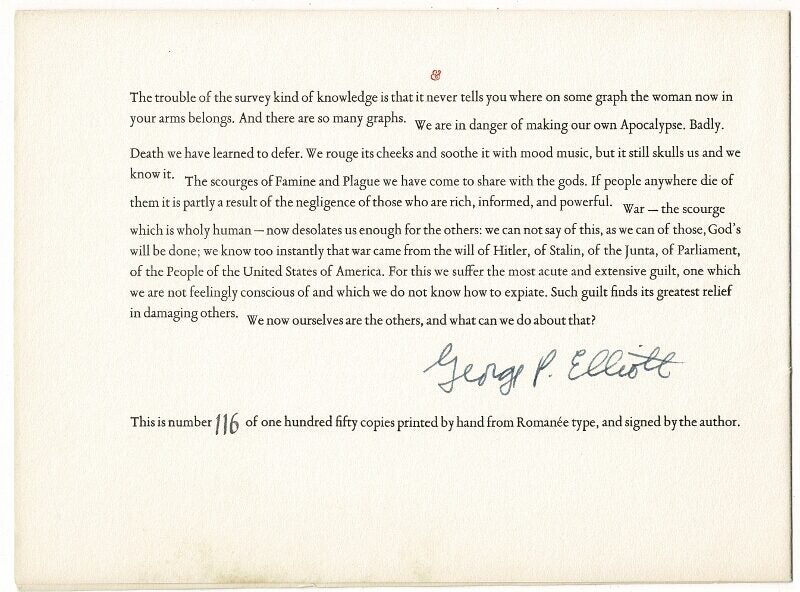 &
The trouble of the survey kind of knowledge is that it never tells you where on some graph the woman now in
your arms belongs. And there are so many graphs. We are in danger of making our own Apocalypse. Badly.
Death we have learned to defer. We rouge its cheeks and soothe it with mood music, but it still skulls us and we
know it. The scourges of Famine and Plague we have come to share with the gods. If people anywhere die of
them it is partly a result of the negligence of those who are rich, informed, and powerful. War — the scourge
which is wholy human — now desolates us enough for the others: we can not say of this, as we can of those, God's
will be done; we know too instantly that war came from the will of Hitler, of Stalin, of the Junta, of Parliament,
of the People of the United States of America. For this we suffer the most acute and extensive guilt, one which
we are not feelingly conscious of and which we do not know how to expiate. Such guilt finds its greatest relief
in damaging others. We now ourselves are the others, and what can we do about that?
George P. Elliott
This is number 116 of one hundred fifty copies printed by hand from Romanée type, and signed by the author.